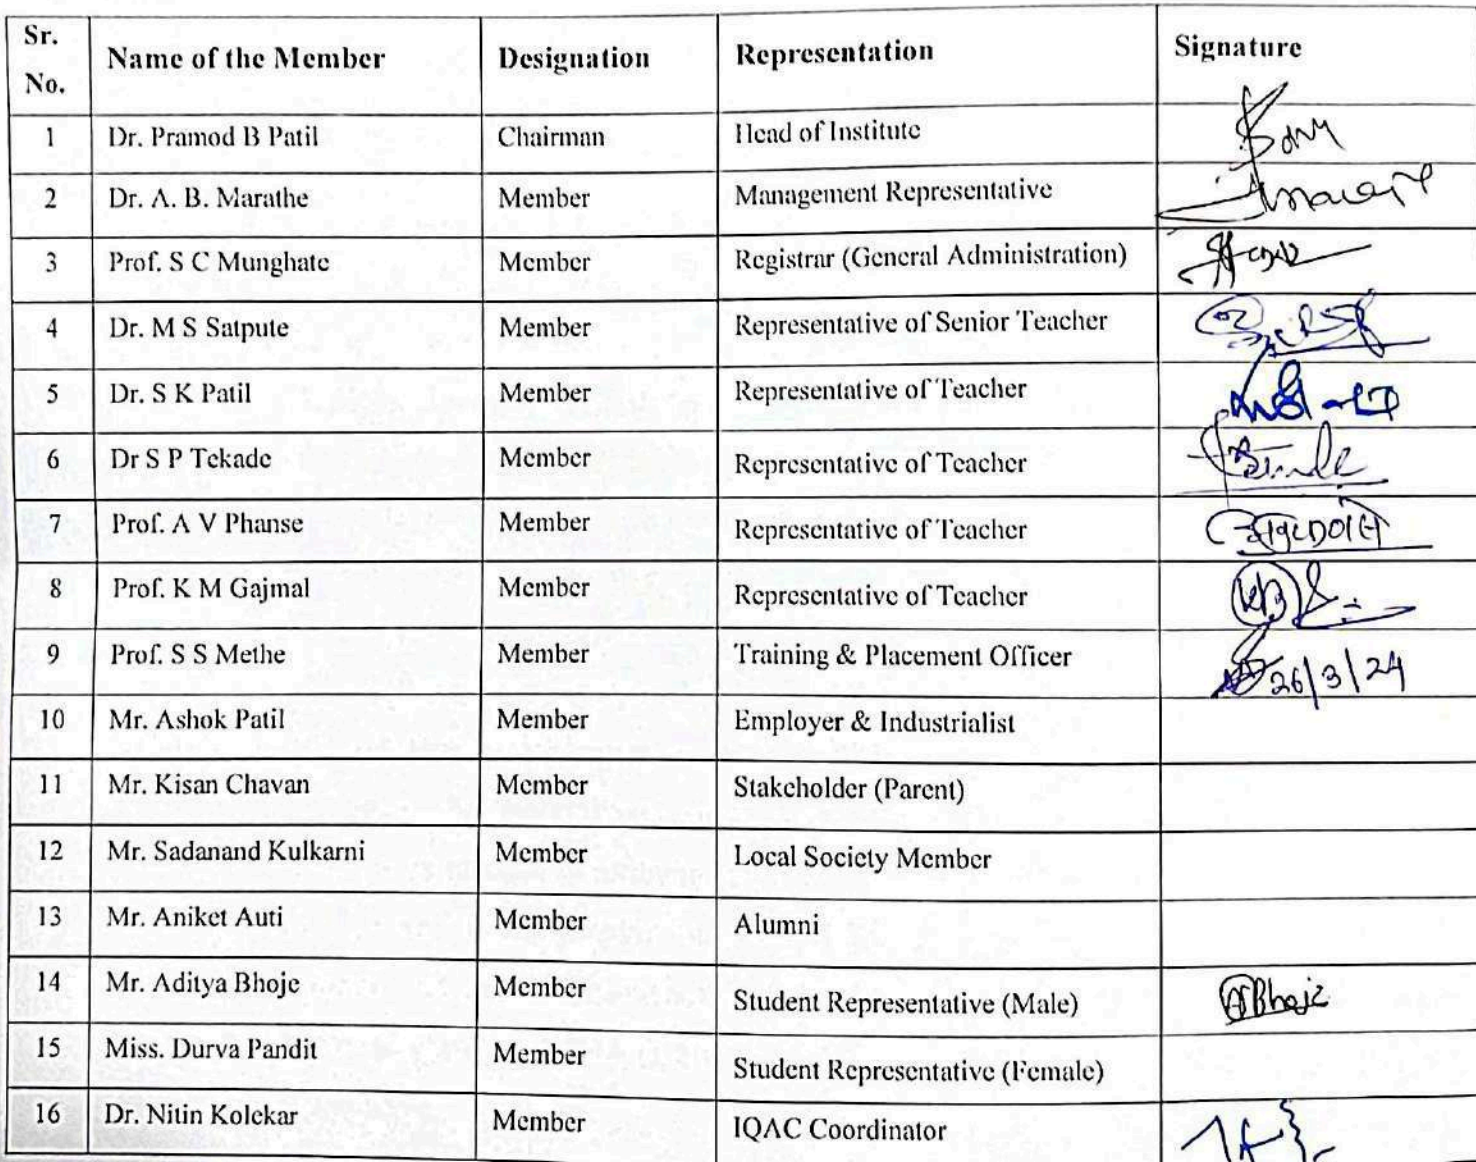 Sr. No. Name of the Member Designation Representation Signature
1 Dr. Pramod B Patil Chairman Head of Institute
2 Dr. A. B. Marathe Member Management Representative
3 Prof. S C Munghate Member Registrar (General Administration)
4 Dr. M S Satpute Member Representative of Senior Teacher
5 Dr. S K Patil Member Representative of Teacher
6 Dr S P Tekade Member Representative of Teacher
7 Prof. A V Phanse Member Representative of Teacher
8 Prof. K M Gajmal Member Representative of Teacher
9 Prof. S S Methe Member Training & Placement Officer 26/3/24
10 Mr. Ashok Patil Member Employer & Industrialist
11 Mr. Kisan Chavan Member Stakeholder (Parent)
12 Mr. Sadanand Kulkarni Member Local Society Member
13 Mr. Aniket Auti Member Alumni
14 Mr. Aditya Bhoje Member Student Representative (Male) ABhoje
15 Miss. Durva Pandit Member Student Representative (Female)
16 Dr. Nitin Kolekar Member IQAC Coordinator